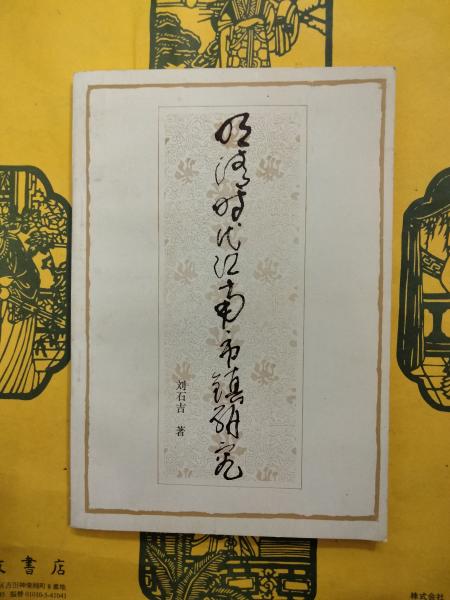 明清时代江南市镇研究
刘石吉 著
書店
株式会社